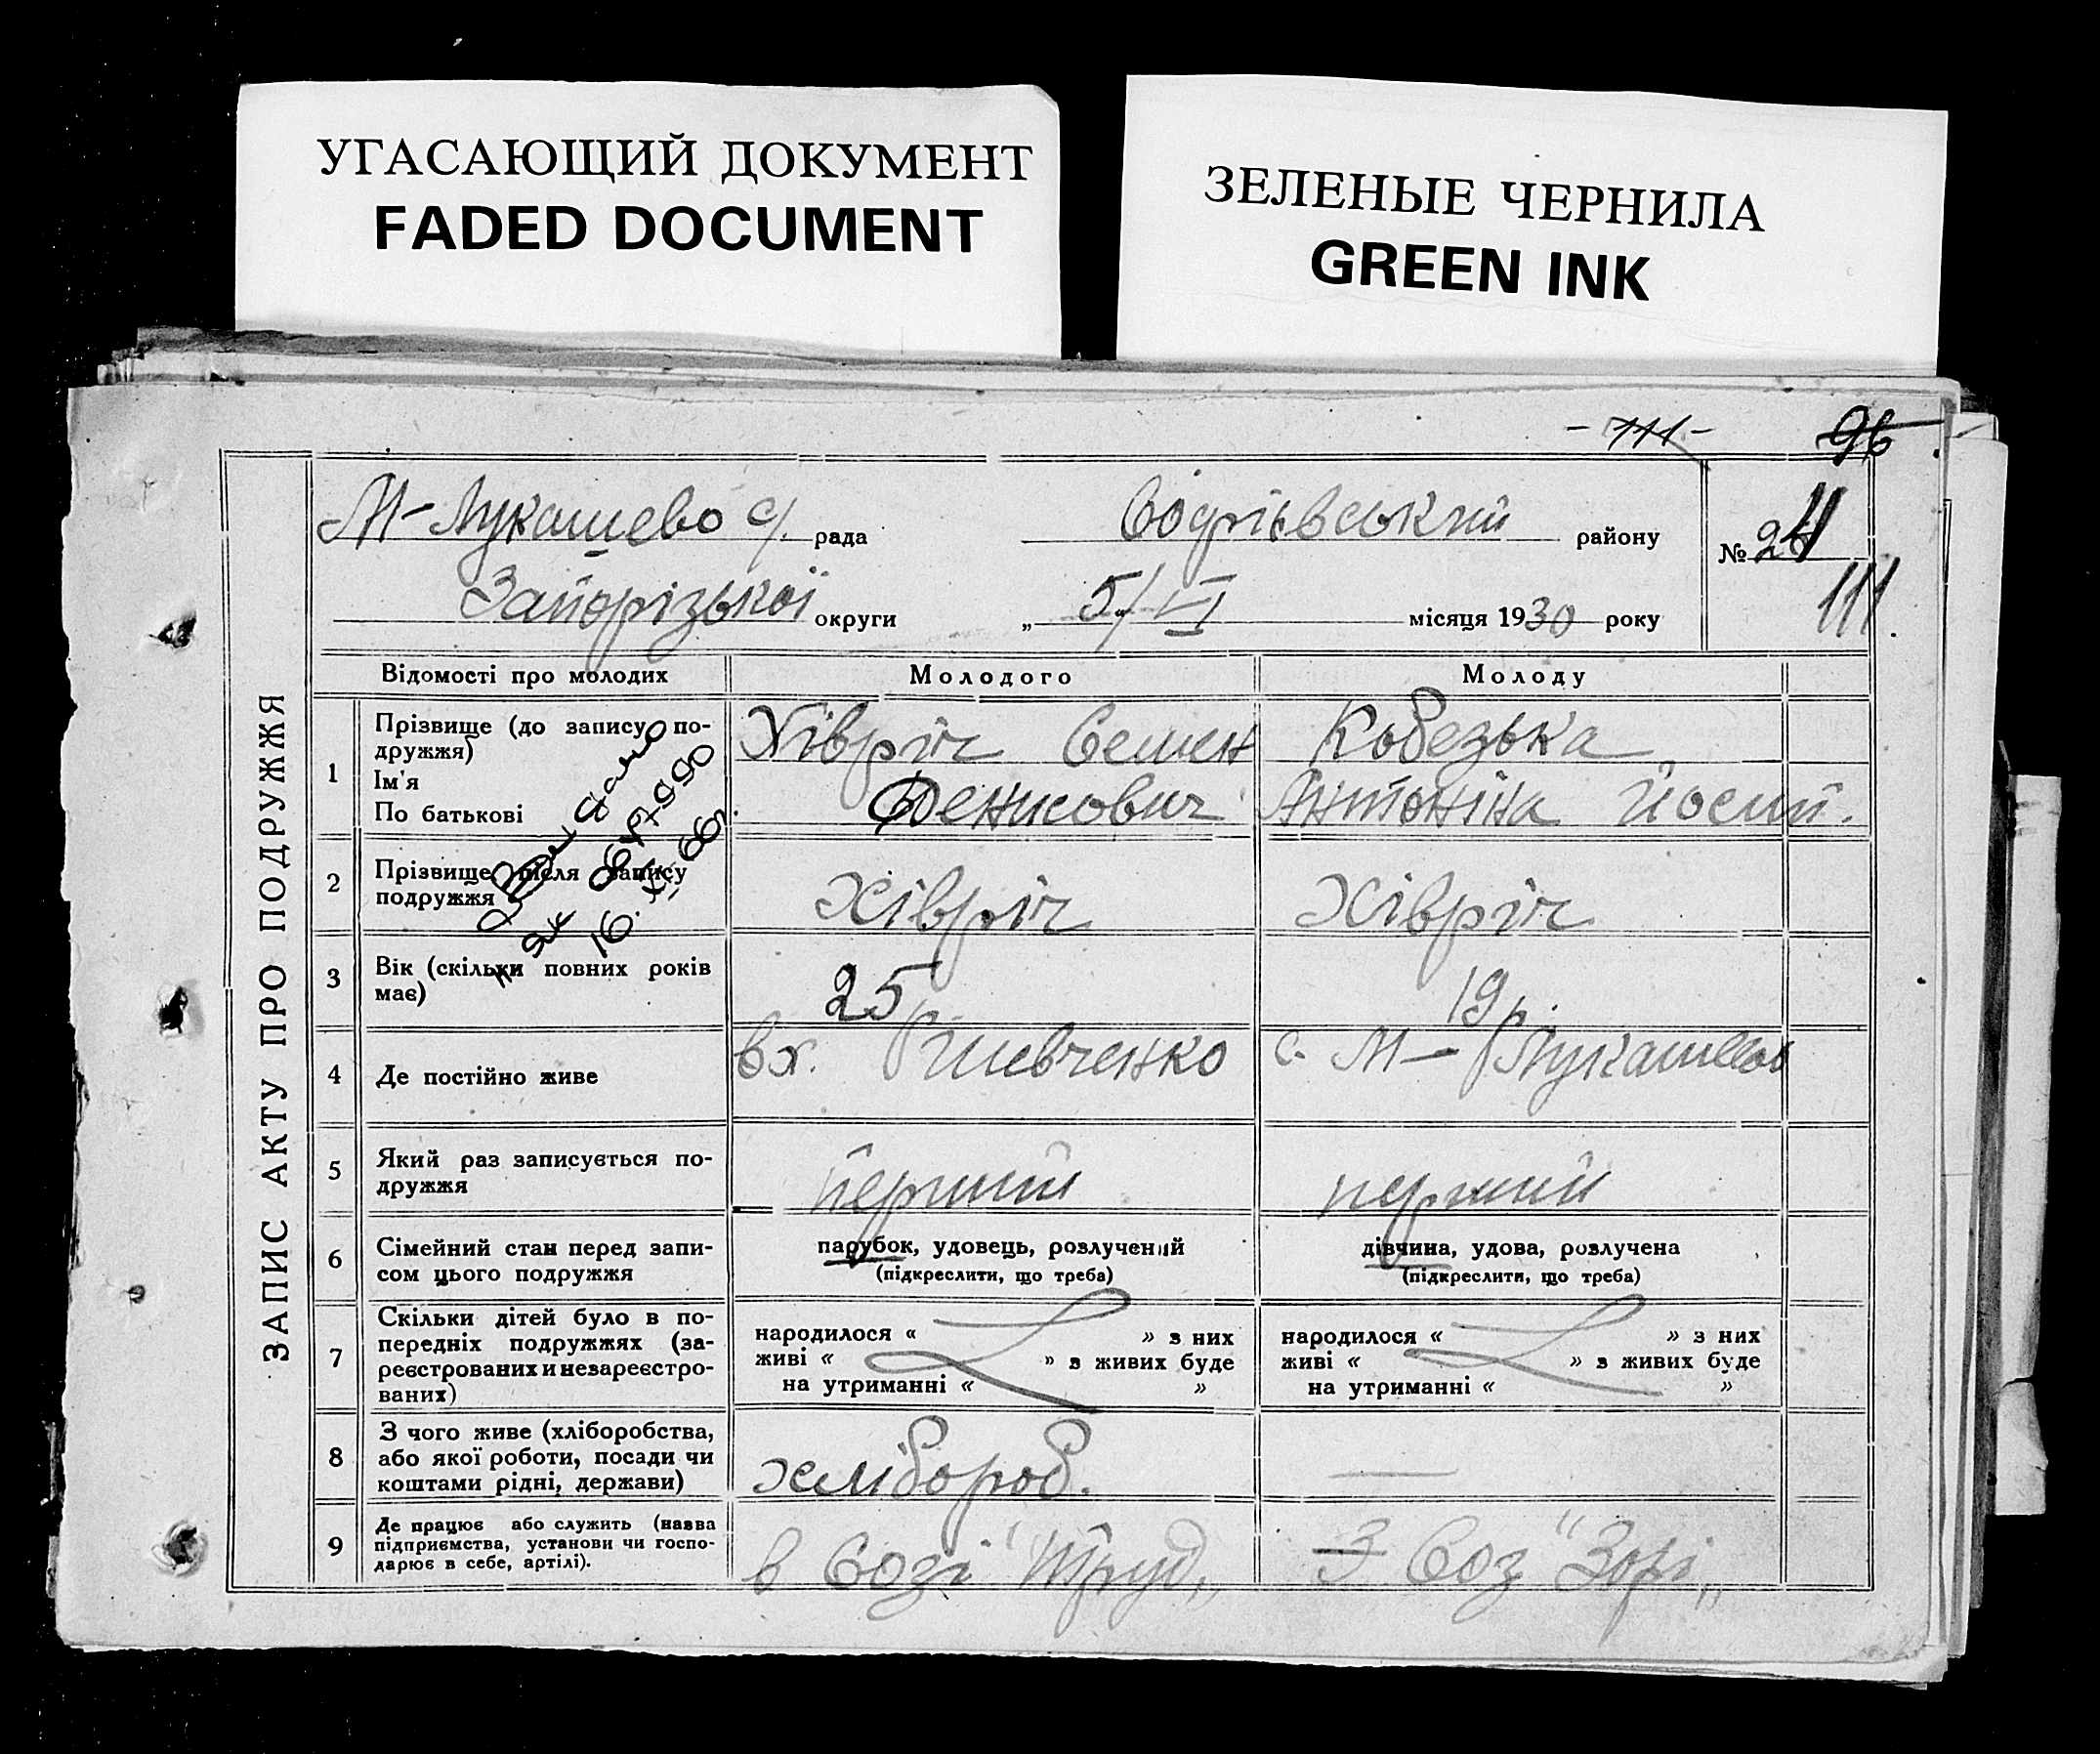 УГАСАЮЩИЙ ДОКУМЕНТ
FADED DOCUMENT
ЗЕЛЕНЫЕ ЧЕРНИЛА
GREEN INK
- 111 -
96
ЗАПИС АКТУ ПРО ПОДРУЖЖЯ
М-Лукашево с/. рада
району
№ 24
111.
Запорізької округи
„ 5/VI місяця 1930 року
Відомості про молодих
Молодого
Молоду
1
Прізвище (до запису по-
дружжя)
Ім'я
По батькові
Хівріч Семен
Денисович
Кобезька
Антоніна Йосип.
Видано
16. XI 66г.
2
Прізвище після запису
подружжя
Хівріч
Хівріч
3
Вік (скільки повних років
має)
25
19 р.
4
Де постійно живе
вх. Шевченко
с. М-Лукашево
5
Який раз записується по-
дружжя
перший
перший
6
Сімейний стан перед запи-
сом цього подружжя
парубок, удовець, розлучений
(підкреслити, що треба)
дівчина, удова, розлучена
(підкреслити, що треба)
7
Скільки дітей було в по-
передніх подружжях (за-
реєстрованих и незареєстро-
ваних)
народилося « » з них
живі « » з живих буде
на утриманні « »
народилося « » з них
живі « » з живих буде
на утриманні « »
8
З чого живе (хліборобства,
або якої роботи, посади чи
коштами рідні, держави)
хлібороб.
—
9
Де працює або служить (назва
підприємства, установи чи госпо-
дарює в себе, артілі).
в Созі "Труд„
З Соз "Зорі„